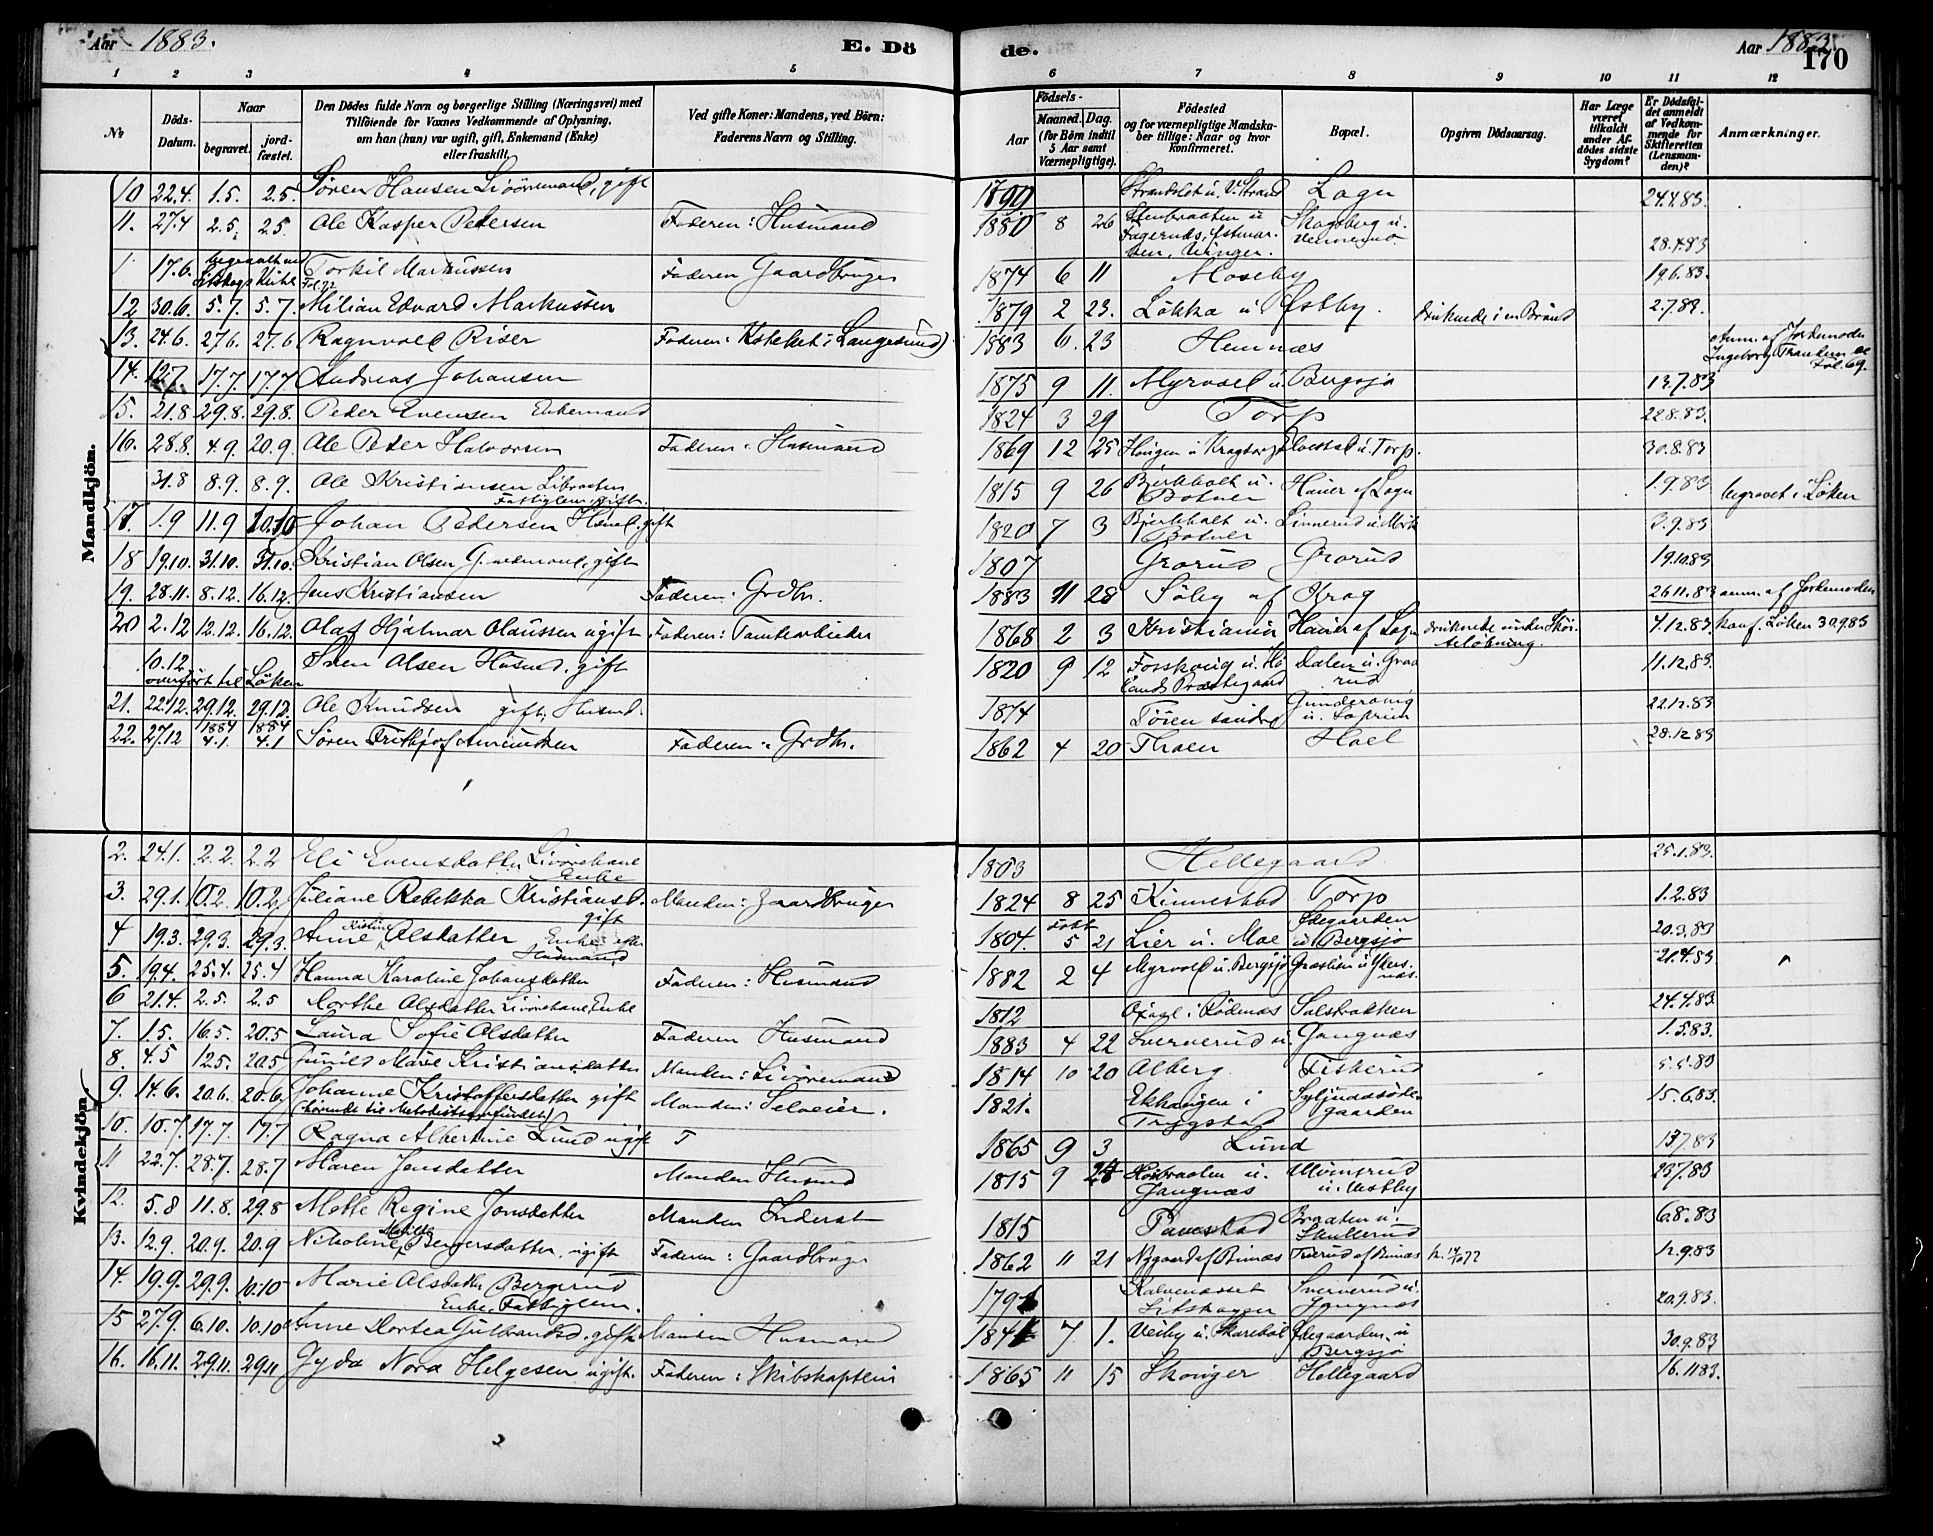 Aar 1883. E. Døde. Aar 1883. 170
1 2 3 4 5 6 7 8 9 10 11 12
No
Döds-Datum.
Naar begravet. jordfæstet.
Den Dödes fulde Navn og borgerlige Stilling (Næringsvei) med Tilföiende for Voxnes Vedkommende af Oplysning, om han (hun) var ugift, gift, Enkemand (Enke) eller fraskilt.
Ved gifte Koner: Mandens, ved Börn: Faderens Navn og Stilling.
Födsels-
Aar Maaned. Dag. (for Börn indtil 5 Aar samt Værnepligtige).
Födested og for værnepligtige Mandskaber tillige: Naar og hvor konfirmeret.
Bopæl.
Opgiven Dödsaarsag.
Har Læge været tilkaldt under Afdödes sidste Sygdom?
Er Dödsfaldet anmeldt af Vedkommende for Skifteretten (Lensmanden)?
Anmærkninger.
Mandkjön.
10 22.4. 1.5. 2.5. Søren Hansen Livöremand, gift 1799 Logn 24.4.83.
11. 27.4 2.5. 2.5 Ole Kasper Petersen Faderen: Husmand 1880 8 26 Stenbraaten u Fagernæs, Vinger. Skogsberg u. 28.4.83
17.6. Torkil Markussen Faderen Gaardbruger 1874 6 11 Moseby 19.6.83.
12 30.6. 5.7. 5.7. Milian Edvard Markussen 1879 2 23. Løkka u Østby. druknede i en Brønd 2.7.83.
13. 24.6. 27.6. 27.6 Ragnvald Riser Faderen: Langesund) 1883 6. 23 Hemnæs Anm. af Jordemoder Ingeborg Fol. 69.
14. 12.7 17.7. 17.7 Andreas Johansen 1875 9 11. Myrvold u. Bergsjø 13.7.83
15. 21.8 29.8. 29.8. Peder Evensen Enkemand 1824 3 29 Torp 22.8.83.
16. 28.8. 4.9. 20.9. Ole Peter Halvorsen Faderen: Husmand 1869 12 25 Haugen u Kragtorp u. Torp. 30.8.83
31.8 8.9. 8.9. Ole Kristiansen Fattiglem, gift. 1815 9 26 Bjerkholt u. Botner Haner af Logn 1.9.83 begravet i Løken
17. 1.9 11.9 10.10 Johan Pedersen gift 1820 7 3 Bjerkholt u. Botner Linnerud u. 3.9.83
18 19.10. 31.10. 31.10. Kristian Olsen gift 1807 Grorud Grorud 19.10.83
19. 28.11. 8.12. 16.12. Jens Kristiansen Faderen: Grdbr. 1883 11 28 Søby af Krog 26.11.83 anm. af Jordemoderen
20 2.12 12.12. 16.12. Olaf Hjalmar Olaussen ugift Faderen: Tomtearbeider 1868 2 3 Kristiania Haner af Logn druknede under Skøiteløbning. 4.12.83. konf. Løken 30.9.83
10.12 overført til Løken Olsen Husmd. gift 1820 9 12 Forskoug u. Hølands Præstegaard Dalen u. Graarud 11.12.83.
21. 22.12. 29.12. 29.12. Ole Knudsen gift, Husmd. 1814 Tøien søndre 22.12.83
22. 27.12 1884 4.1. 1884 4.1 Søren Fritjof Amundsen Faderen: Grdbr. 1862 4 20 Thoen Hoel 28.12.83
Kvindekjön.
2. 24.1. 2.2. 2.2 Eli Evensdatter Livörekone Enke 1803 Hellegaard 25.1.83.
3. 29.1. 10.2. 10.2. Juliane Rebekka Kristiansd. gift Manden: Gaardbruger 1824 8 25 Kinnestad Torp 1.2.83
4 19.3. 29.3. 29.3. Anne Kristine Olsdatter Enke efter Husmand 1804. døbt 5 21 Lier u. Moe Ødegaarden u Bergsjø 20.3.83
5. 19.4. 25.4. 25.4 Hanna Karoline Johansdatter Faderen: Husmand 1882 2 4 Myrvold u. Bergsjø Græslien u 21.4.83
6 21.4. 2.5. 2.5 Dorthe Olsdatter Livörekone, Enke 1812 i Rødenæs Solstrakken 24.4.83
7. 1.5. 16.5. 20.5 Laura Sofie Olsdatter Faderen Husmand 1883 4 22 Sververud u. Gangnæs 1.5.83.
8. 4.5 12.5. 20.5 Gunild Marie Kristiansdatter Manden: Livöremand 1814 10 20 Alberg. Fiskerud 5.5.83
9. 14.6. 20.6. 20.6. Johanne Kristoffersdatter gift (hørende til Metodistsamfundet) Manden: Selveier. 1821. Ekhaugen i Trygstad 15.6.83
10. 10.7. 17.7. 17.7 Ragna Albertine Lund ugift F 1865 9 3 Lund 13.7.83
11 22.7. 28.7. 28.7 Maren Jensdatter Manden Husmd 1815 9 24 u. Gangnæs u. Vestby 23.7.83
12. 5.8 11.8. 29.8 Mette Regine Jonsdatter Manden Inderst 1815 Pavestad Braaten u. Skullerud 6.8.83
13. 12.9. 20.9. 20.9 Nikoline Matilde Bergersdatter, ugift Faderen: Gaardbruger 1862 11 21 Nygaard af Bunæs Tuerud af Bunæs 12.9.83
14. 19.9. 29.9. 10.10 Marie Olsdatter Bergerud Enke, Fattiglem. Kalvenæsset Setskogen Sververud u. Gangnæs 20.9.83.
15 27.9. 6.10. 10.10 Anne Dortea Gulbrandsd. gift Manden Husmand 7. 1. Veiby u. Skarebøl Ødegaarden u Bergsjø 30.9.83
16. 16.11. 29.11. 29.11 Gyda Nora Helgesen ugift. Faderen: Skibskaptein 1865 11 15 Skouger Hellegaard 16.11.83.